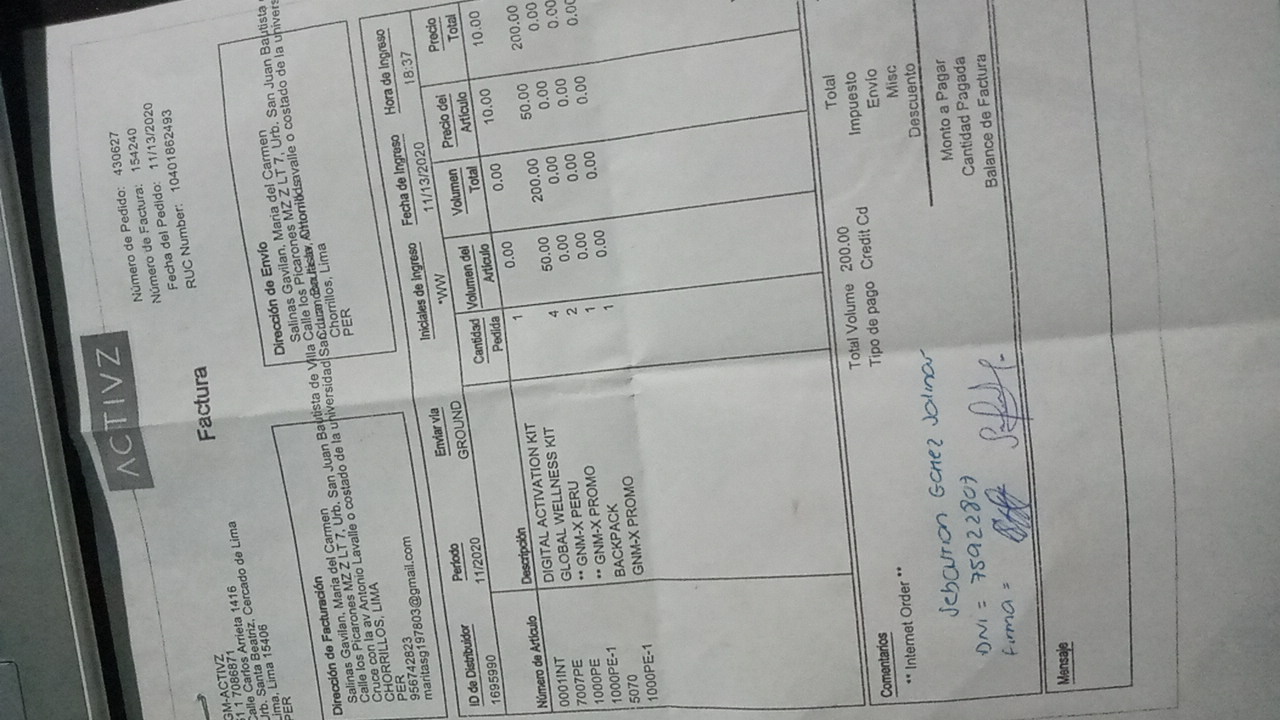 ACTIVZ
Factura
GM-ACTIVZ
Calle Carlos Arrieta 1416
Urb. Santa Beatriz. Cercado de Lima
Lima, Lima 15406
PER
Número de Pedido: 430627
Número de Factura: 154240
Fecha del Pedido: 11/13/2020
RUC Number: 10401862493
Dirección de Facturación
Salinas Gavilan, Maria del Carmen
Calle los Picarones MZ Z LT 7, Urb. San Juan Bautista de Villa
Cruce con la av Antonio Lavalle o costado de la universidad San Juan Bautista
CHORRILLOS, LIMA
PER
956742823
mariasg197803@gmail.com
Dirección de Envío
Salinas Gavilan, Maria del Carmen
Calle los Picarones MZ Z LT 7, Urb. San Juan Bautista
Lavalle o costado de la univers
Chorrillos, Lima
PER
ID de Distribuidor Periodo Enviar via Iniciales de Ingreso Fecha de Ingreso Hora de Ingreso
1695990 11/2020 GROUND *WW 11/13/2020 18:37
Número de Artículo Descripción Cantidad Pedida Volumen del Artículo Volumen Total Precio del Artículo Precio Total
0001INT DIGITAL ACTIVATION KIT 1 0.00 0.00 10.00 10.00
7007PE GLOBAL WELLNESS KIT 4 50.00 200.00 50.00 200.00
1000PE ** GNM-X PERU 2 0.00 0.00 0.00 0.00
1000PE-1 ** GNM-X PROMO 1 0.00 0.00 0.00 0.00
5070 BACKPACK 1 0.00 0.00 0.00
1000PE-1 GNM-X PROMO
Total Volume 200.00
Tipo de pago Credit Cd
Total
Impuesto
Envío
Misc
Descuento
Monto a Pagar
Cantidad Pagada
Balance de Factura
Comentarios
** Internet Order **
DNI = 75922807
Firma =
Mensaje